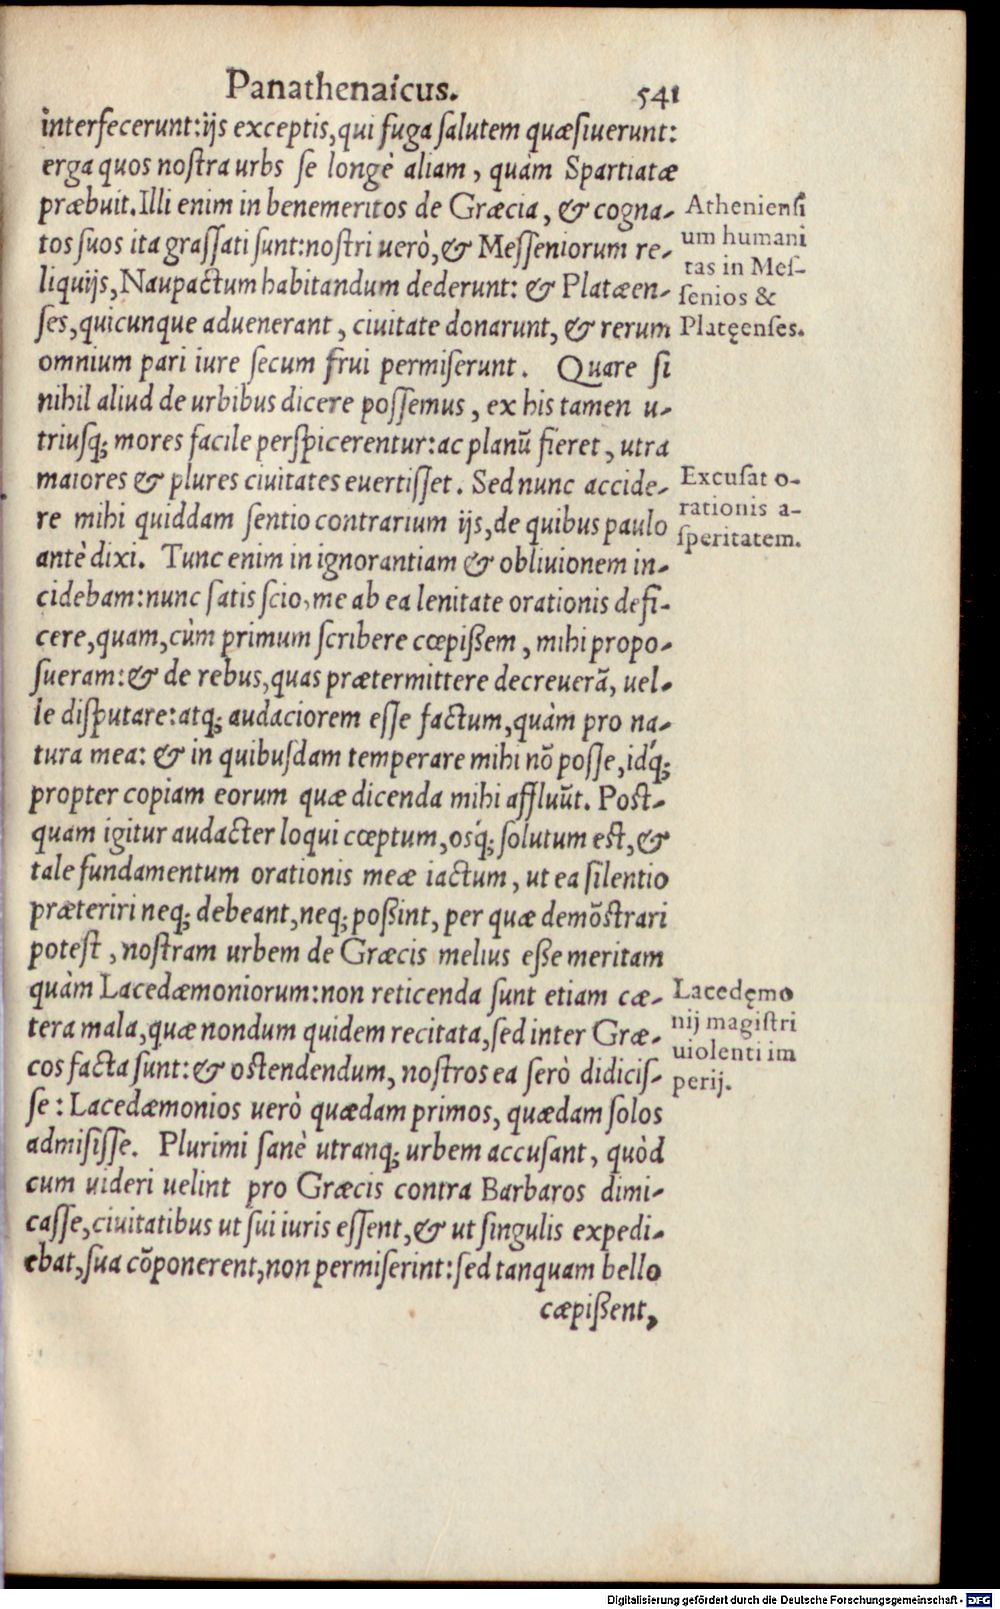 Panathenaicus. 541
interfecerunt: ijs exceptis, qui fuga salutem quæsiuerunt:
erga quos nostra urbs se longè aliam, quàm Spartiatæ
præbuit. Illi enim in benemeritos de Græcia, & cogna-
tos suos ita grassati sunt: nostri uerò, & Messeniorum re-
liquijs, Naupactum habitandum dederunt: & Platæen-
ses, quicunque aduenerant, ciuitate donarunt, & rerum
omnium pari iure secum frui permiserunt. Quare si
nihil aliud de urbibus dicere possemus, ex his tamen u-
triusq; mores facile perspicerentur: ac planũ fieret, utra
maiores & plures ciuitates euertisset. Sed nunc accide-
re mihi quiddam sentio contrarium ijs, de quibus paulo
antè dixi. Tunc enim in ignorantiam & obliuionem in-
cidebam: nunc satis scio, me ab ea lenitate orationis defi-
cere, quam, cùm primum scribere cœpißem, mihi propo-
sueram: & de rebus, quas prætermittere decreuerã, uel-
le disputare: atq; audaciorem esse factum, quàm pro na-
tura mea: & in quibusdam temperare mihi nõ posse, idq́;
propter copiam eorum quæ dicenda mihi affluũt. Post-
quam igitur audacter loqui cœptum, osq́; solutum est, &
tale fundamentum orationis meæ iactum, ut ea silentio
præteriri neq; debeant, neq; poßint, per quæ demõstrari
potest, nostram urbem de Græcis melius eße meritam
quàm Lacedæmoniorum: non reticenda sunt etiam cæ-
tera mala, quæ nondum quidem recitata, sed inter Græ-
cos facta sunt: & ostendendum, nostros ea serò didicis-
se: Lacedæmonios uerò quædam primos, quædam solos
admisisse. Plurimi sanè utranq; urbem accusant, quòd
cum uideri uelint pro Græcis contra Barbaros dimi-
casse, ciuitatibus ut sui iuris essent, & ut singulis expedi-
ebat, sua cõponerent, non permiserint: sed tanquam bello
cæpißent,
Atheniensi
um humani
tas in Mes-
senios &
Platęenses.
Excusat o-
rationis a-
speritatem.
Lacedęmo
nij magistri
uiolenti im
perij.
Digitalisierung gefördert durch die Deutsche Forschungsgemeinschaft - DFG